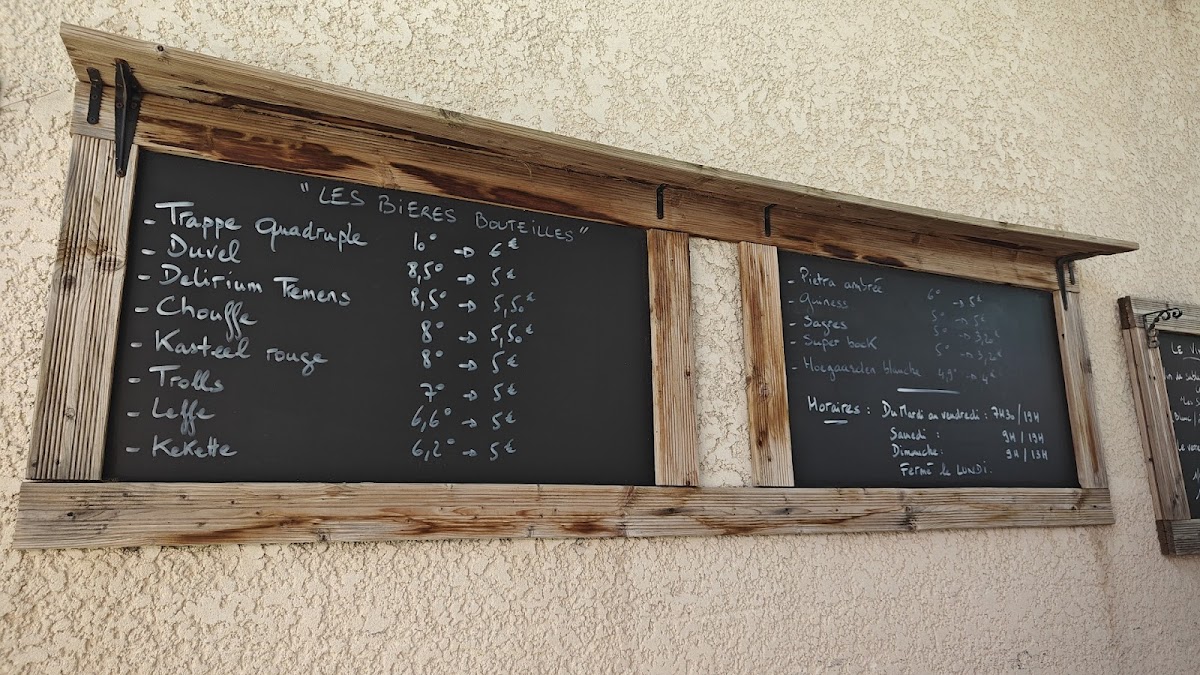 "LES BIERES BOUTEILLES"
- Trappe Quadruple 10° → 6€
- Duvel 8,5° → 5€
- Delirium Tremens 8,5° → 5,50€
- Chouffe 8° → 5,50€
- Kasteel rouge 8° → 5€
- Trolls 7° → 5€
- Leffe 6,6° → 5€
- Kekette 6,2° → 5€
- Pietra ambrée 6° → 5€
- Guiness 5° → 5€
- Sagres 5° → 3,20€
- Super bock 5° → 3,20€
- Hoegaarden blanche 4,9° → 4€
Horaires : Du Mardi au vendredi : 7H30/19H
Samedi : 9H/19H
Dimanche : 9H/13H
Fermé le LUNDI.
LE